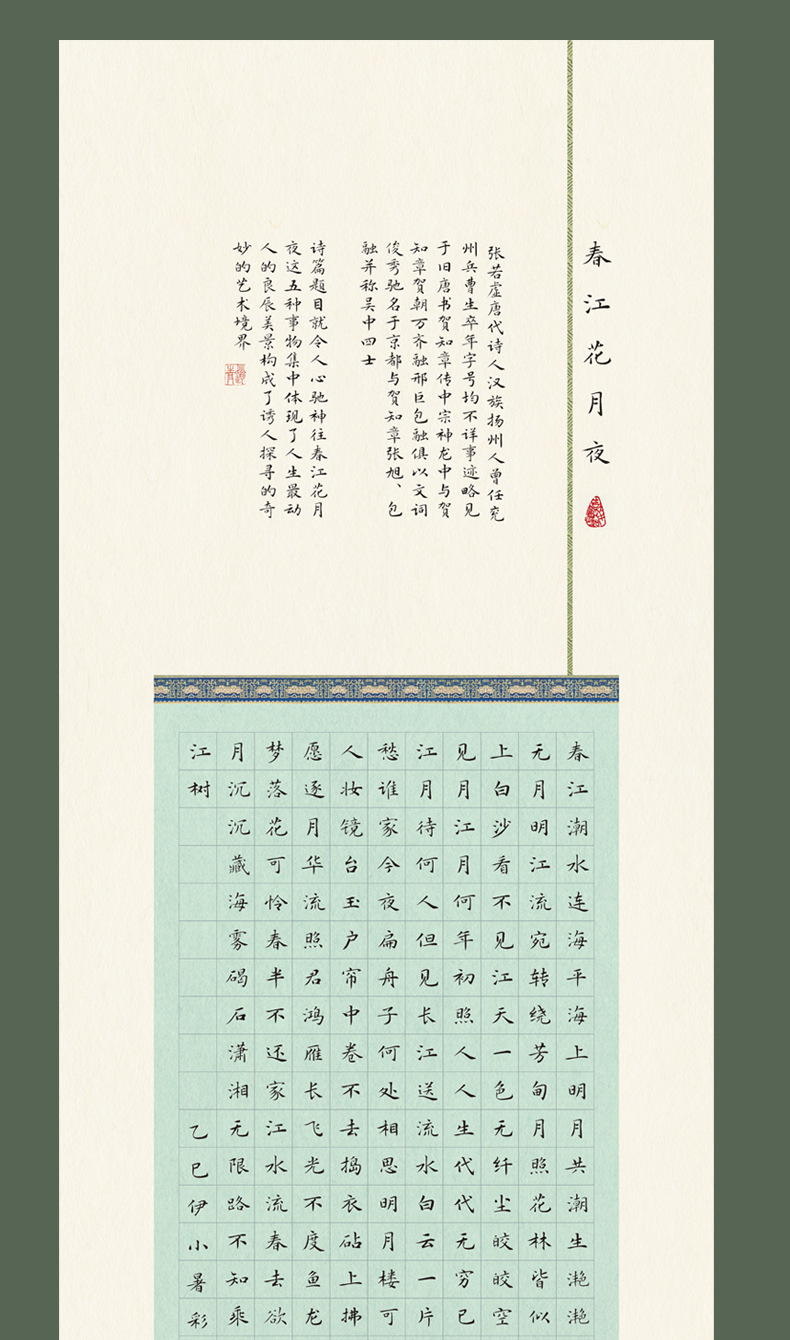 春江花月夜
张若虚唐代诗人汉族扬州人曾任兖
州兵曹生卒年字号均不详事迹略见
于旧唐书贺知章传中宗神龙中与贺
知章贺朝万齐融邢巨包融俱以文词
俊秀驰名于京都与贺知章张旭、包
融并称吴中四士
诗篇题目就令人心驰神往春江花月
夜这五种事物集中体现了人生最动
人的良辰美景构成了诱人探寻的奇
妙的艺术境界
春江潮水连海平海上明月共潮生滟滟
无月明江流宛转绕芳甸月照花林皆似
上白沙看不见江天一色无纤尘皎皎空
见月江月何年初照人人生代代无穷已
江月待何人但见长江送流水白云一片
愁谁家今夜扁舟子何处相思明月楼可
人妆镜台玉户帘中卷不去捣衣砧上拂
愿逐月华流照君鸿雁长飞光不度鱼龙
梦落花可怜春半不还家江水流春去欲
月沉沉藏海雾碣石潇湘无限路不知乘
江树
乙巳伊小暑彩